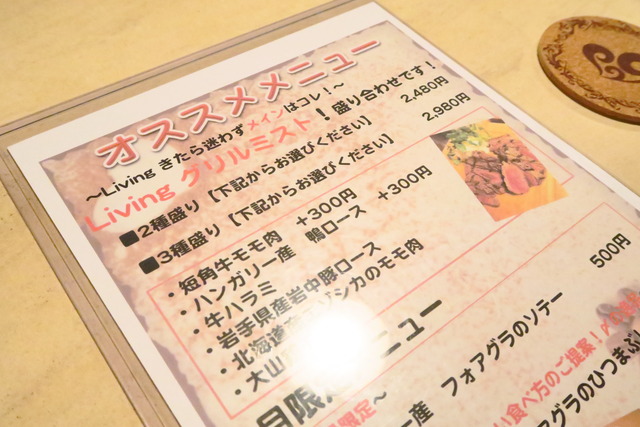 オススメメニュー
～Living きたら迷わずメインはコレ！～
Living グリルミスト！盛り合わせです！
■2種盛り【下記からお選びください】 2,480円
■3種盛り【下記からお選びください】 2,980円
・短角牛モモ肉 +300円
・ハンガリー産 鴨ロース +300円
・牛ハラミ
・岩手県産岩中豚ロース
・北海道 シカのモモ肉
・大山
月限 ニュー
限定～
産 フォアグラのソテー 500円
い食べ方のご提案！
アグラのひつまぶし